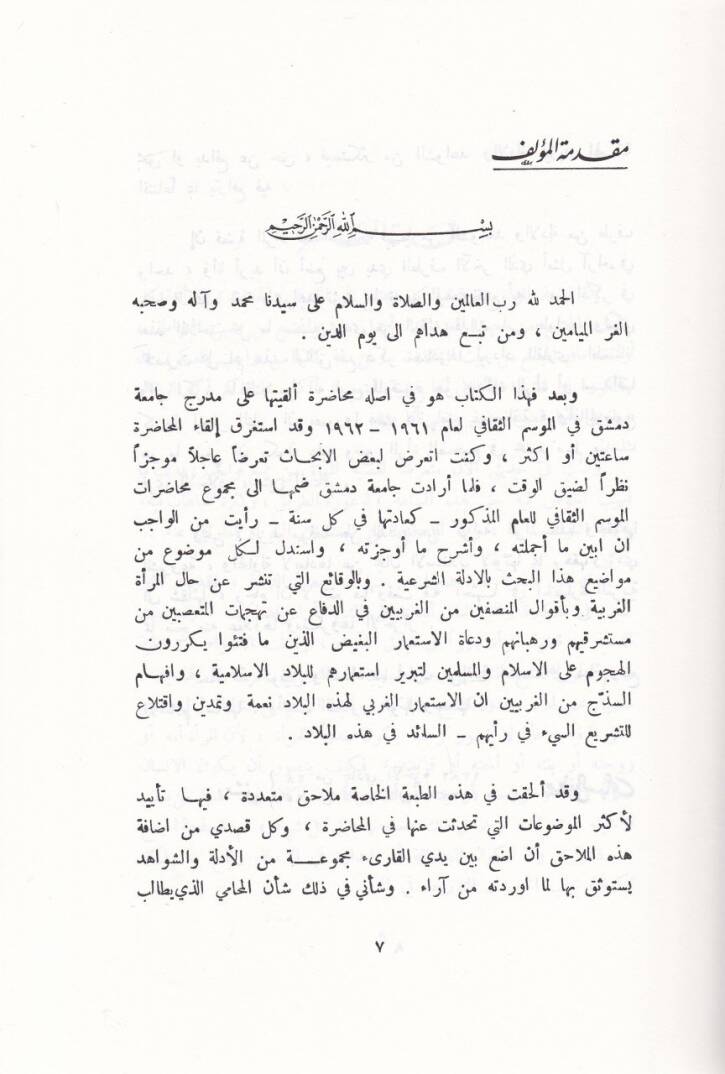 مقدمة المؤلف
بسم الله الرحمن الرحيم
الحمد لله رب العالمين والصلاة والسلام على سيدنا محمد وآله وصحبه
الغر الميامين ، ومن تبع هداهم الى يوم الدين .
وبعد فهذا الكتاب هو في اصله محاضرة ألقيتها على مدرج جامعة
دمشق في الموسم الثقافي لعام ١٩٦١ – ١٩٦٢ وقد استغرق إلقاء المحاضرة
ساعتين أو اكثر ، وكنت اتعرض لبعض الابحاث تعرضاً عاجلاً موجزاً
نظراً لضيق الوقت ، فلما أرادت جامعة دمشق ضمها الى مجموع محاضرات
الموسم الثقافي للعام المذكور – كعادتها في كل سنة – رأيت من الواجب
ان ابين ما أجملته ، وأشرح ما أوجزته ، واستدل لكل موضوع من
مواضيع هذا البحث بالادلة الشرعية . وبالوقائع التي تنشر عن حال المرأة
الغربية وبأقوال المنصفين من الغربيين في الدفاع عن تهجمات المتعصبين من
مستشرقيهم ورهبانهم ودعاة الاستعمار البغيض الذين ما فتئوا يكررون
الهجوم على الاسلام والمسلمين لتبرير استعمارهم للبلاد الاسلامية ، وافهام
السذّج من الغربيين ان الاستعمار الغربي لهذه البلاد نعمة وتمدين واقتلاع
للتشريع السيء في رأيهم – السائد في هذه البلاد .
وقد ألحقت في هذه الطبعة الخاصة ملاحق متعددة ، فيها تأييد
لأكثر الموضوعات التي تحدثت عنها في المحاضرة ، وكل قصدي من اضافة
هذه الملاحق أن اضع بين يدي القارىء مجموعة من الأدلة والشواهد
يستوثق بها لما اوردته من آراء . وشأني في ذلك شأن المحامي الذي يطالب
٧